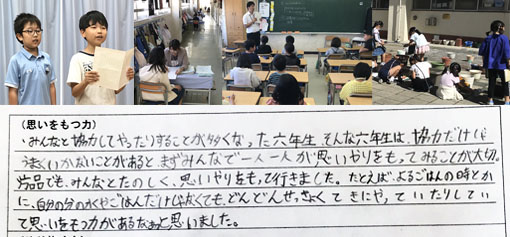 (思いをもつ力)
・みんなと協力してやったりすることが多くなった六年生。そんな六年生は、協力だけじゃ
うまくいかないことがあると、まずみんなで一人一人が思いやりをもってみることが大切。
片品でも、みんなとたのしく、思いやりをもって行きました。たとえば、よるごはんの時とか
に、自分の分のおぐやごはんだけじゃなくても、どんどんせっきょくてきにやっていたりしてい
て思いをもつ力があるなぁと思いました。